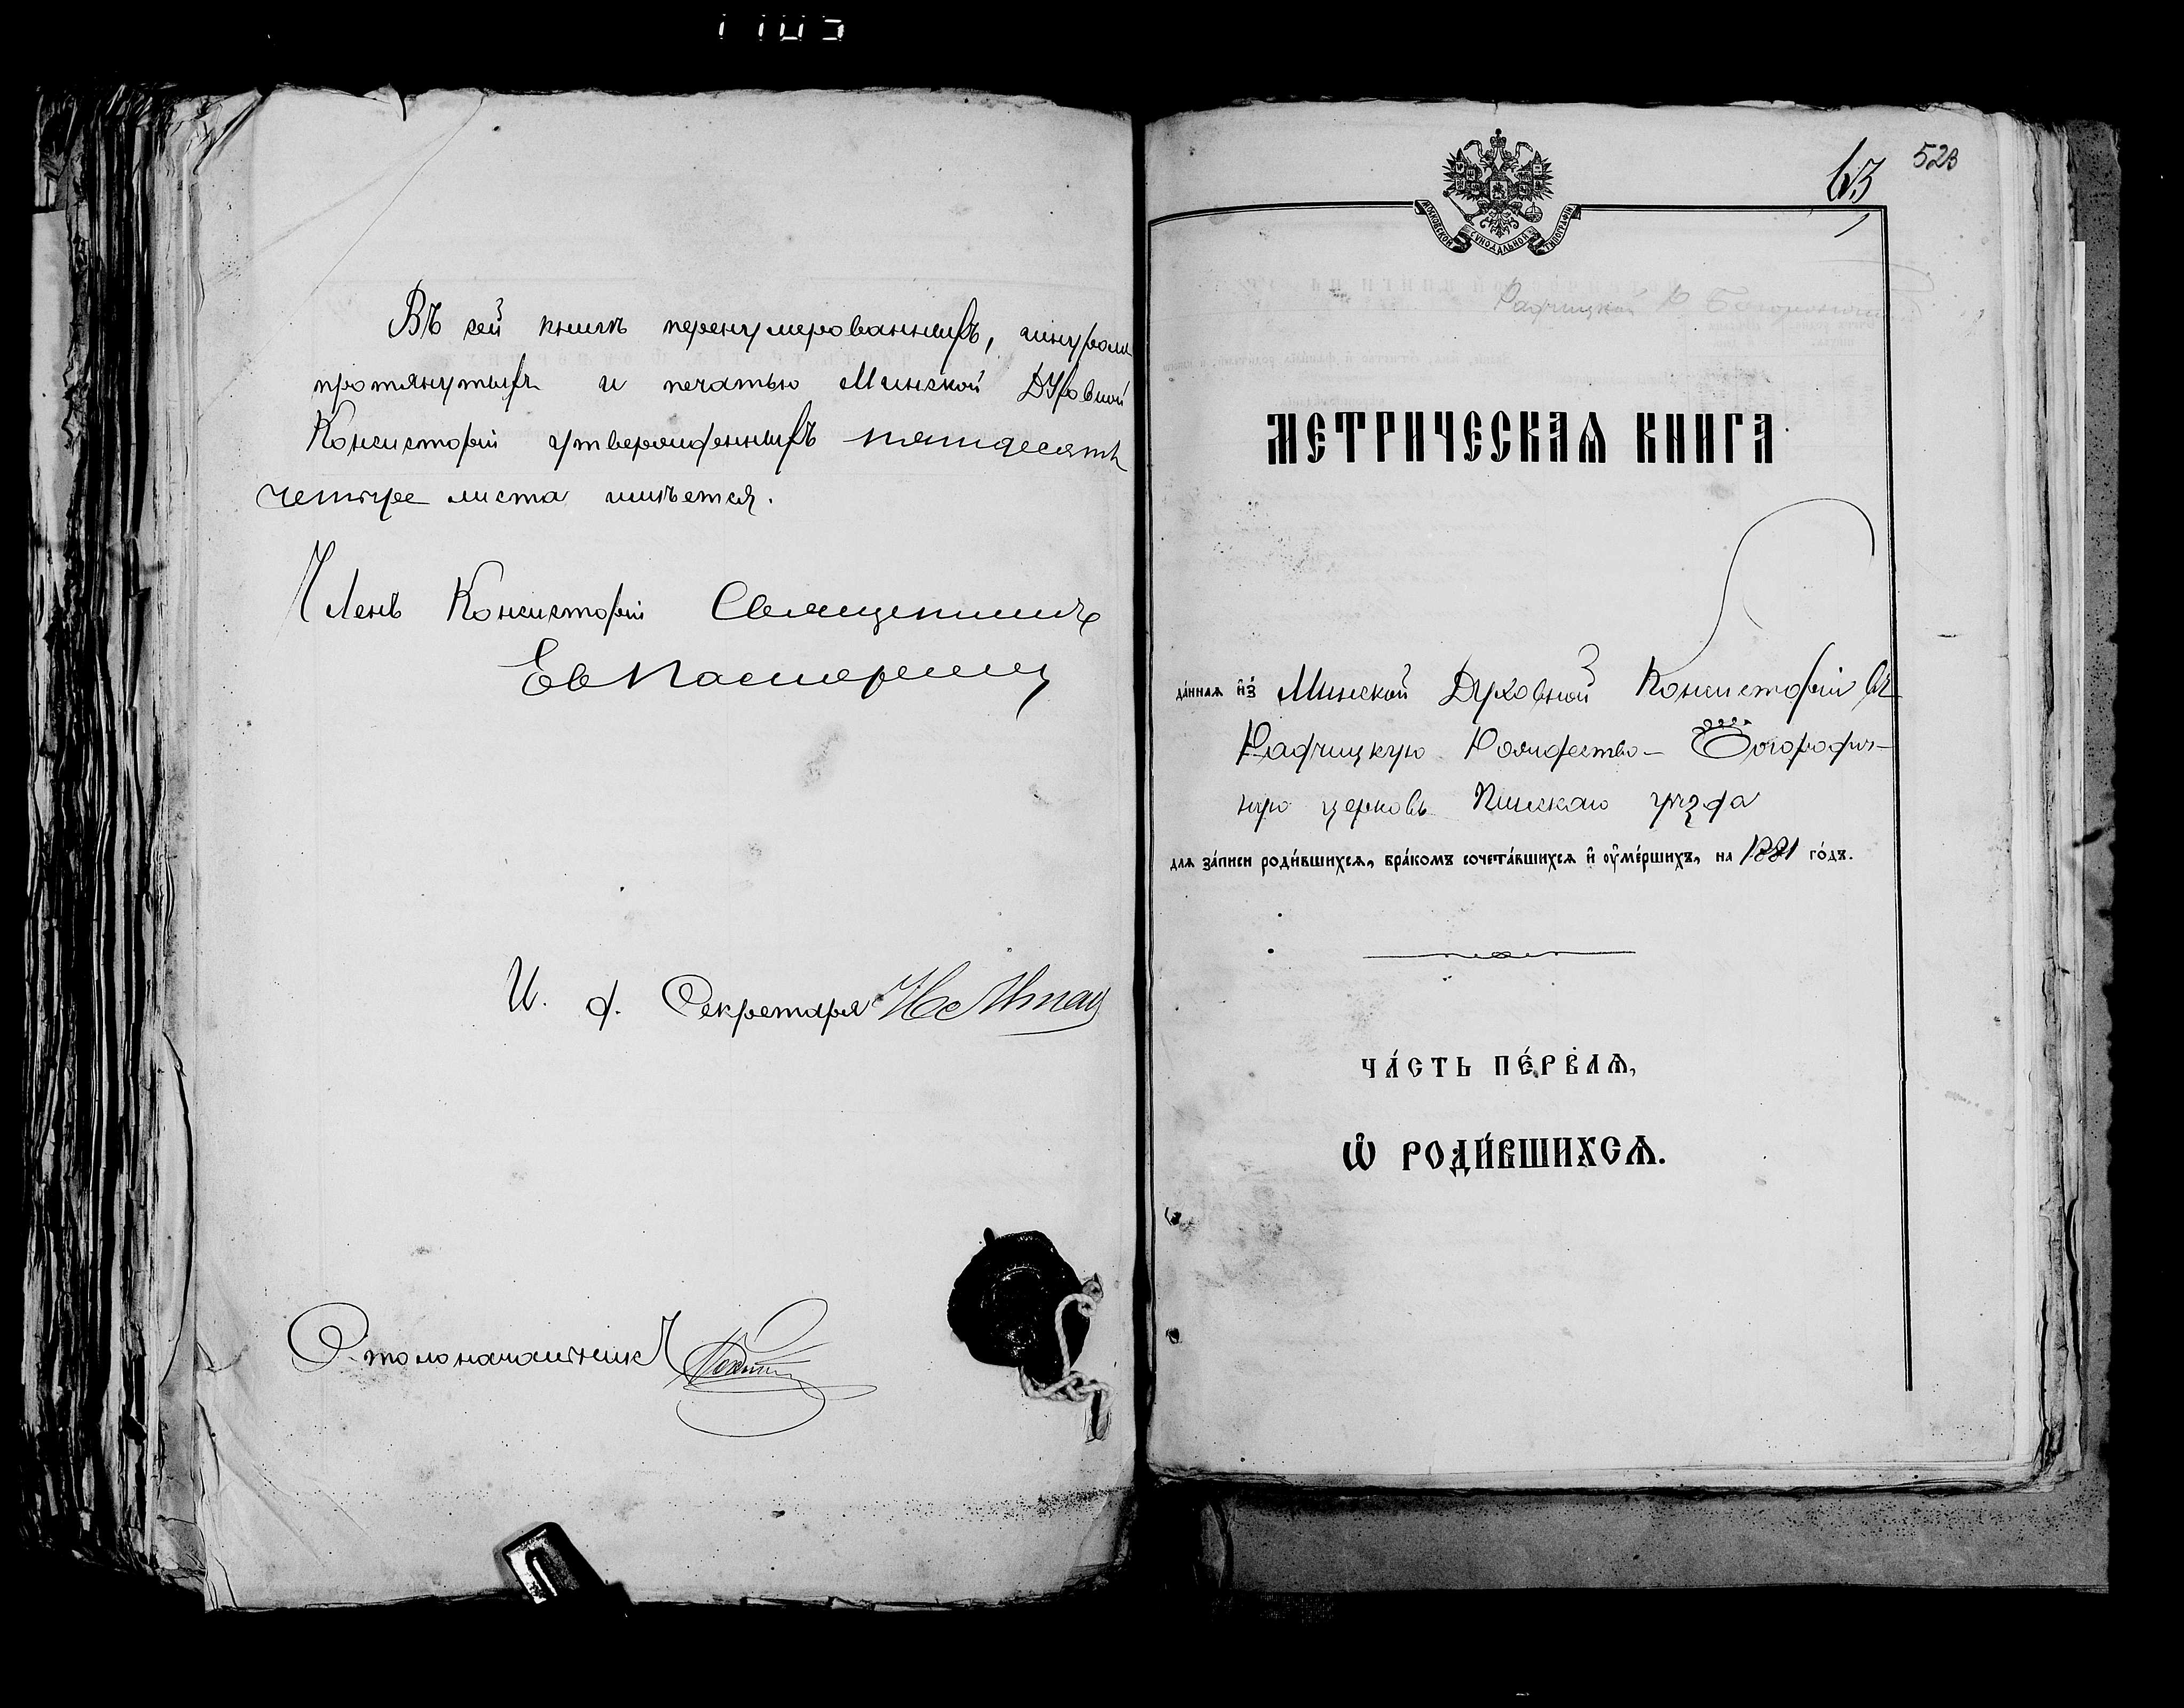 Въ сей книгѣ перенумерованныхъ, шнуромъ
протянутыхъ и печатью Минской Духовной
Консисторіи утвержденныхъ пятьдесятъ
четыре листа имѣется.
Членъ Консисторіи Священникъ
И. д. Секретаря
Столоначальникъ
523
63
МОСКОВСКОЙ СѴНОДАЛЬНОЙ ТИПОГРАФІИ
Радчицкой Р Богородич
МЕТРИЧЕСКАѦ КНИГА
да́ннаѧ и҆з̾ Минской Духовной Консисторіи въ
Радчицкую Рождество-Богородич-
ную церковь Пинскаго уѣзда
длѧ за́писи роди́вшихсѧ, бра́комъ сочета́вшихсѧ и҆ ᲂу҆ме́ршихъ, на 1881 го́дъ.
ЧА́СТЬ ПЕ́РВАѦ,
Ѽ РОДИ́ВШИХСѦ.